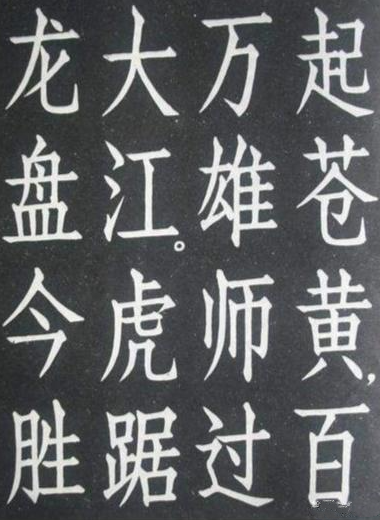 起苍黄，百
万雄师过
大江。虎踞
龙盘今胜